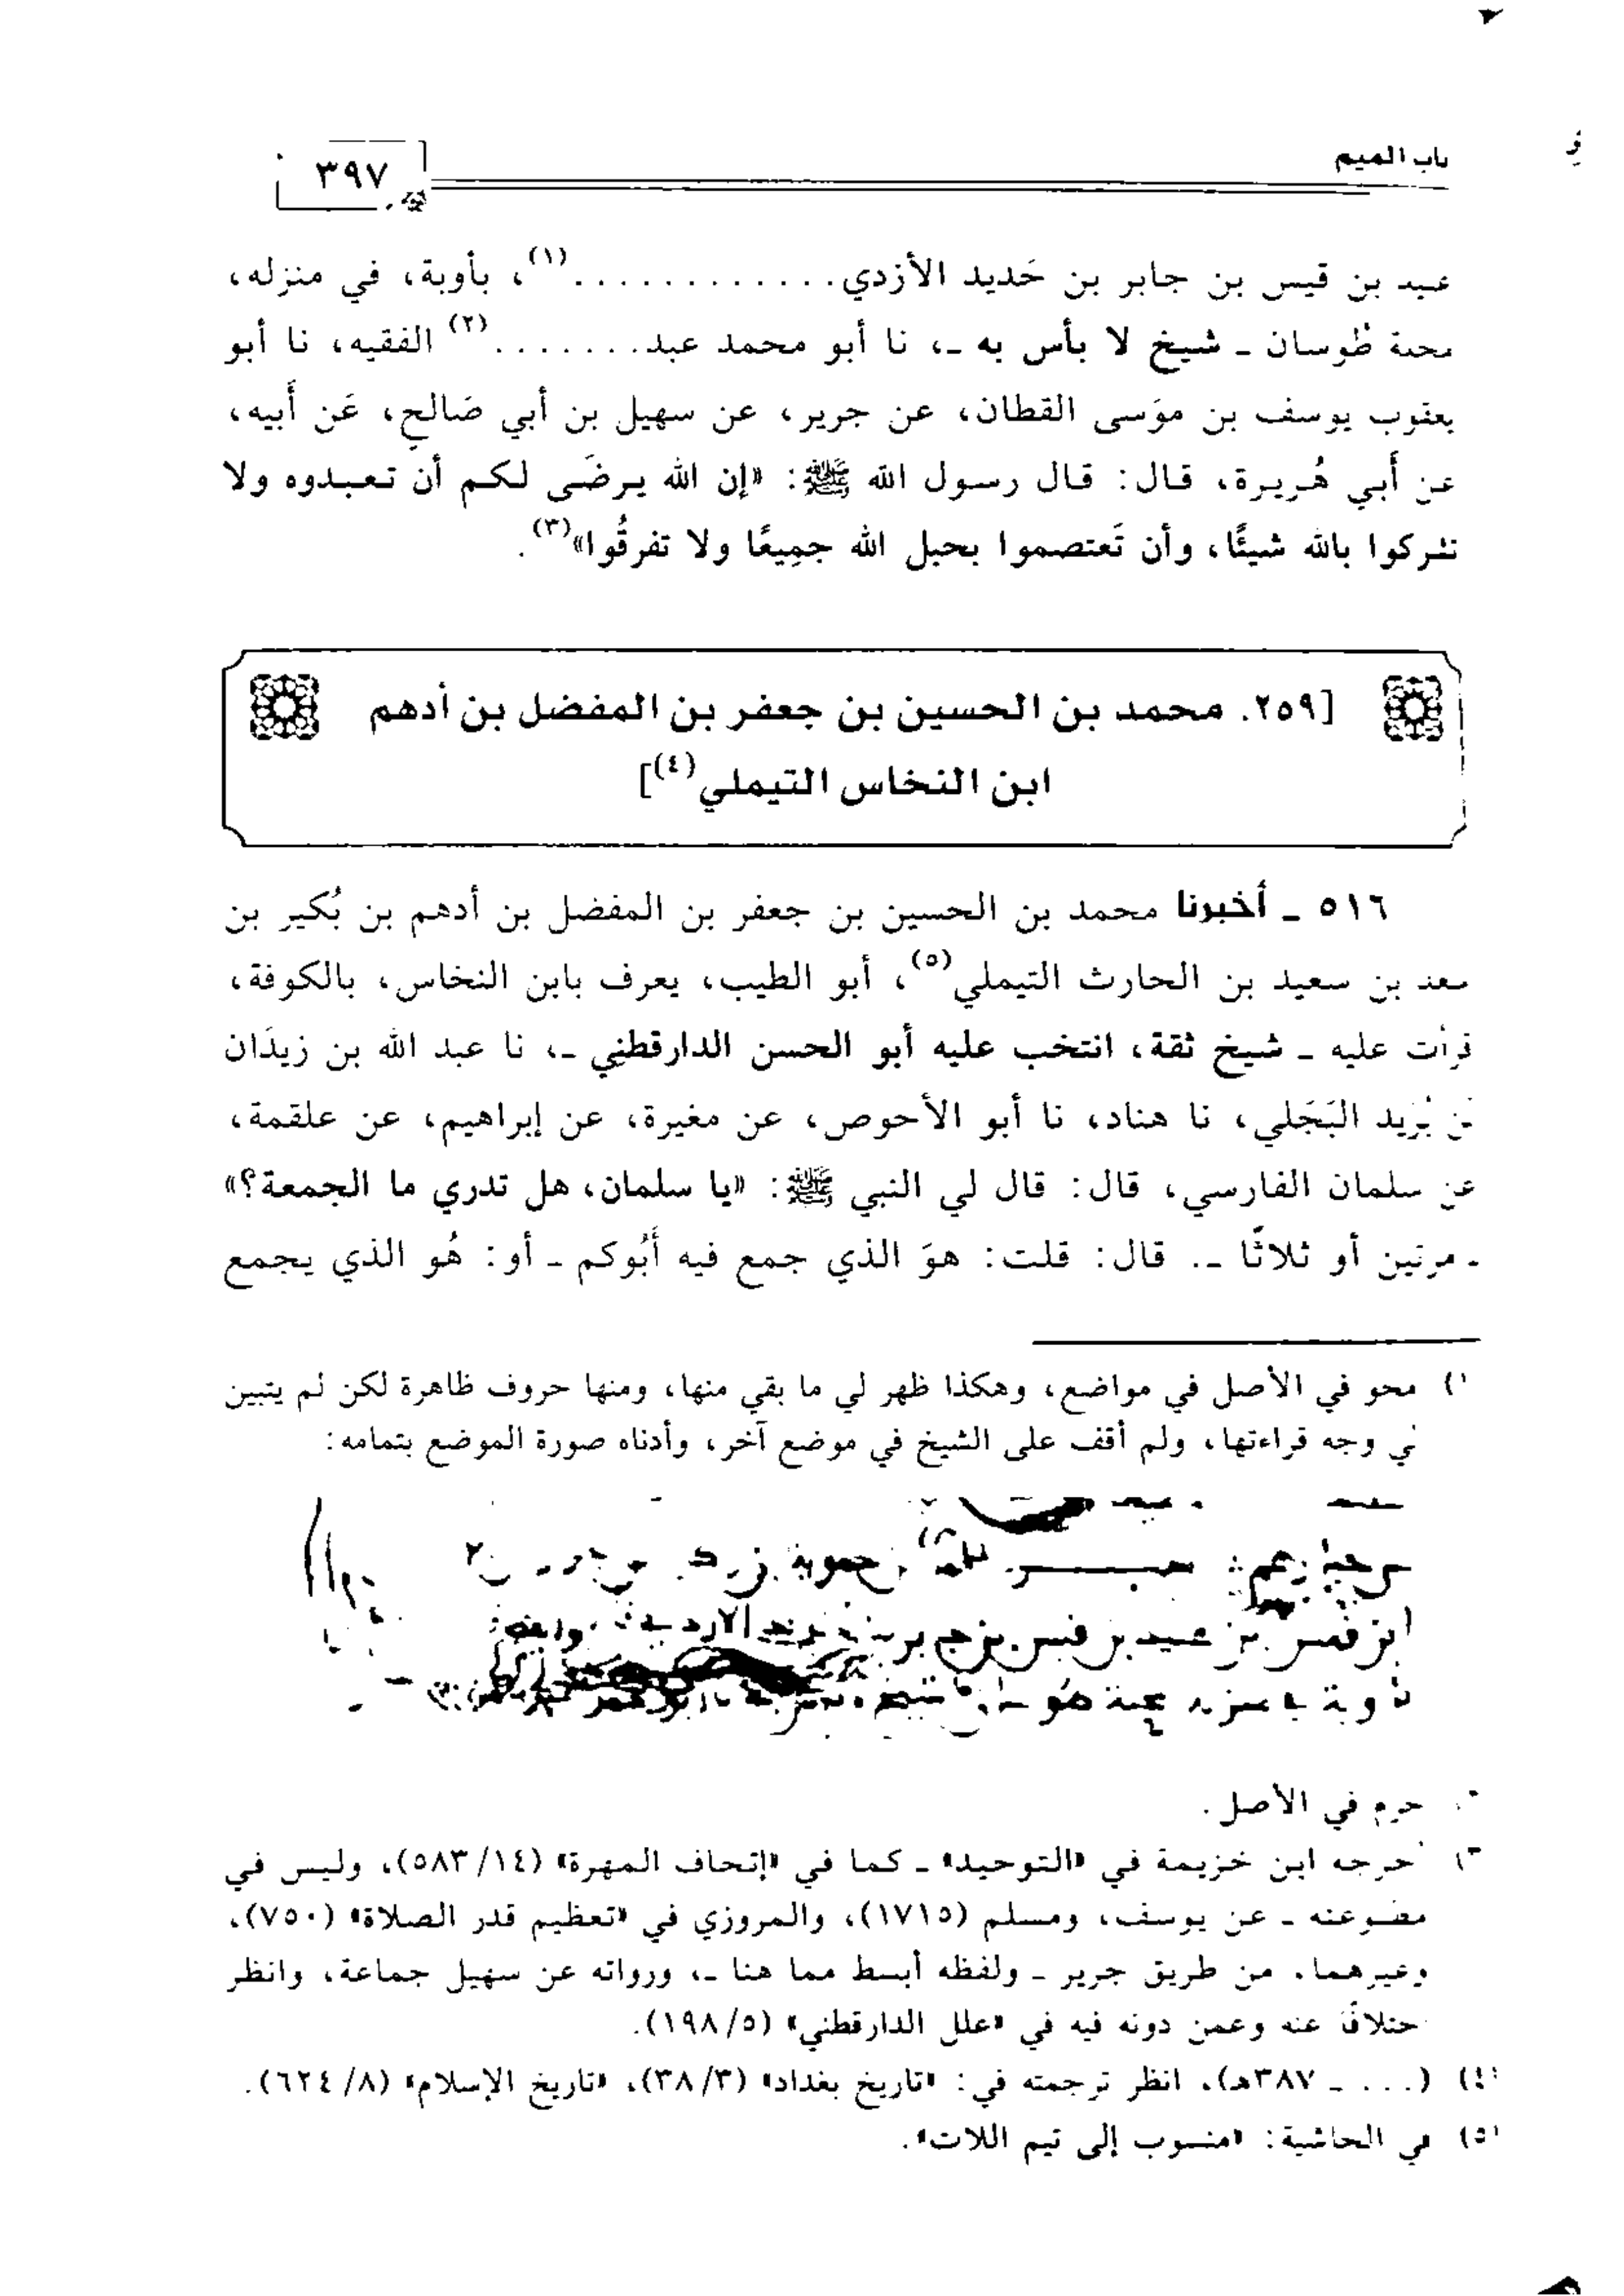 باب الميم
٣٩٧
عبيد بن قيس بن جابر بن حَديد الأزدي............(١)، بأوبة، في منزله،
محلة طوسان ـ شيخ لا بأس به ـ، نا أبو محمد عبد.......(٢) الفقيه، نا أبو
يعقوب يوسف بن موَسى القطان، عن جرير، عن سهيل بن أبي صَالحٍ، عَن أَبيه،
عن أَبي هُريرة، قال: قال رسول الله ﷺ: «إن الله يرضَى لكم أن تعبدوه ولا
تشركوا بالله شيئًا، وأن تَعتصموا بحبل الله جمِيعًا ولا تفرقُوا»(٣).
[٢٥٩. محمد بن الحسين بن جعفر بن المفضل بن أدهم
ابن النخاس التيملي(٤)]
٥١٦ ـ أخبرنا محمد بن الحسين بن جعفر بن المفضل بن أدهم بن بُكير بن
سعد بن سعيد بن الحارث التيملي(٥)، أبو الطيب، يعرف بابن النخاس، بالكوفة،
قرأت عليه ـ شيخ ثقة، انتخب عليه أبو الحسن الدارقطنِي ـ، نا عبد الله بن زيدَان
بن بُرَيد البَجَلي، نا هناد، نا أبو الأحوص، عن مغيرة، عن إبراهيم، عن علقمة،
عن سلمان الفارسي، قال: قال لي النبي ﷺ: «يا سلمان، هل تدري ما الجمعة؟»
ـ مرتين أو ثلاثًا ـ. قال: قلت: هوَ الذي جمع فيه أَبُوكم ـ أو: هُو الذي يجمع
(١) محو في الأصل في مواضع، وهكذا ظهر لي ما بقي منها، ومنها حروف ظاهرة لكن لم يتبين
لي وجه قراءتها، ولم أقف على الشيخ في موضع آخر، وأدناه صورة الموضع بتمامه:
خرم في الأصل.
(٣) أخرجه ابن خزيمة في «التوحيد» ـ كما في «إتحاف المهرة» (١٤/ ٥٨٣)، وليس في
مطبوعته ـ عن يوسف، ومسلم (١٧١٥)، والمروزي في «تعظيم قدر الصلاة» (٧٥٠)،
وغيرهما، من طريق جرير ـ ولفظه أبسط مما هنا ـ، ورواته عن سهيل جماعة، وانظر
اختلافًا عنه وعمن دونه فيه في «علل الدارقطني» (٥/ ١٩٨).
(٤) (... ـ ٣٨٧هـ)، انظر ترجمته في: «تاريخ بغداد» (٣/ ٣٨)، «تاريخ الإسلام» (٨/ ٦٢٤).
(٥) في الحاشية: «منسوب إلى تيم اللات».